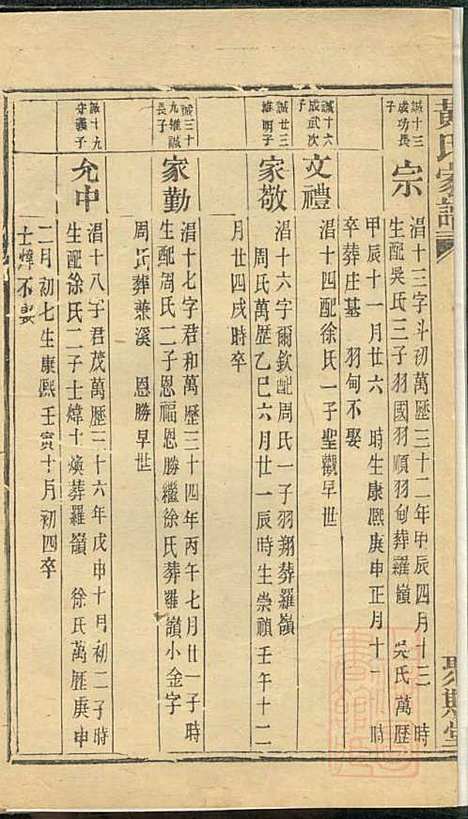 黃氏家譜
聚斯堂
誠十三
成功長
子
宗
涺十三字斗初萬歷三十二年甲辰四月十三 時
生配吳氏三子羽國羽順羽甸葬羅嶺 吳氏萬歷
甲辰十一月廿六 時生康熙庚申正月十一 時
卒葬庄基 羽甸不娶
誠十六
成武次
子
文禮
涺十四配徐氏一子聖觀早世
誠廿三
維明子
家敬
涺十六字爾欽配周氏一子羽翔葬羅嶺
周氏萬歷乙巳六月廿一辰時生崇禎壬午十二
月廿四戌時卒
誠三十
九維誠
長子
家勤
涺十七字君和萬歷三十四年丙午七月廿一子時
生配周氏二子恩福恩勝繼徐氏葬羅嶺小金字
周氏葬兼溪 恩勝早世
誠十九
守義子
允中
涺十八字君茂萬歷三十六年戊申十月初二子時
生配徐氏二子士煒士煥葬羅嶺 徐氏萬歷庚申
二月初七生康熙壬寅十月初四卒
士煒不娶